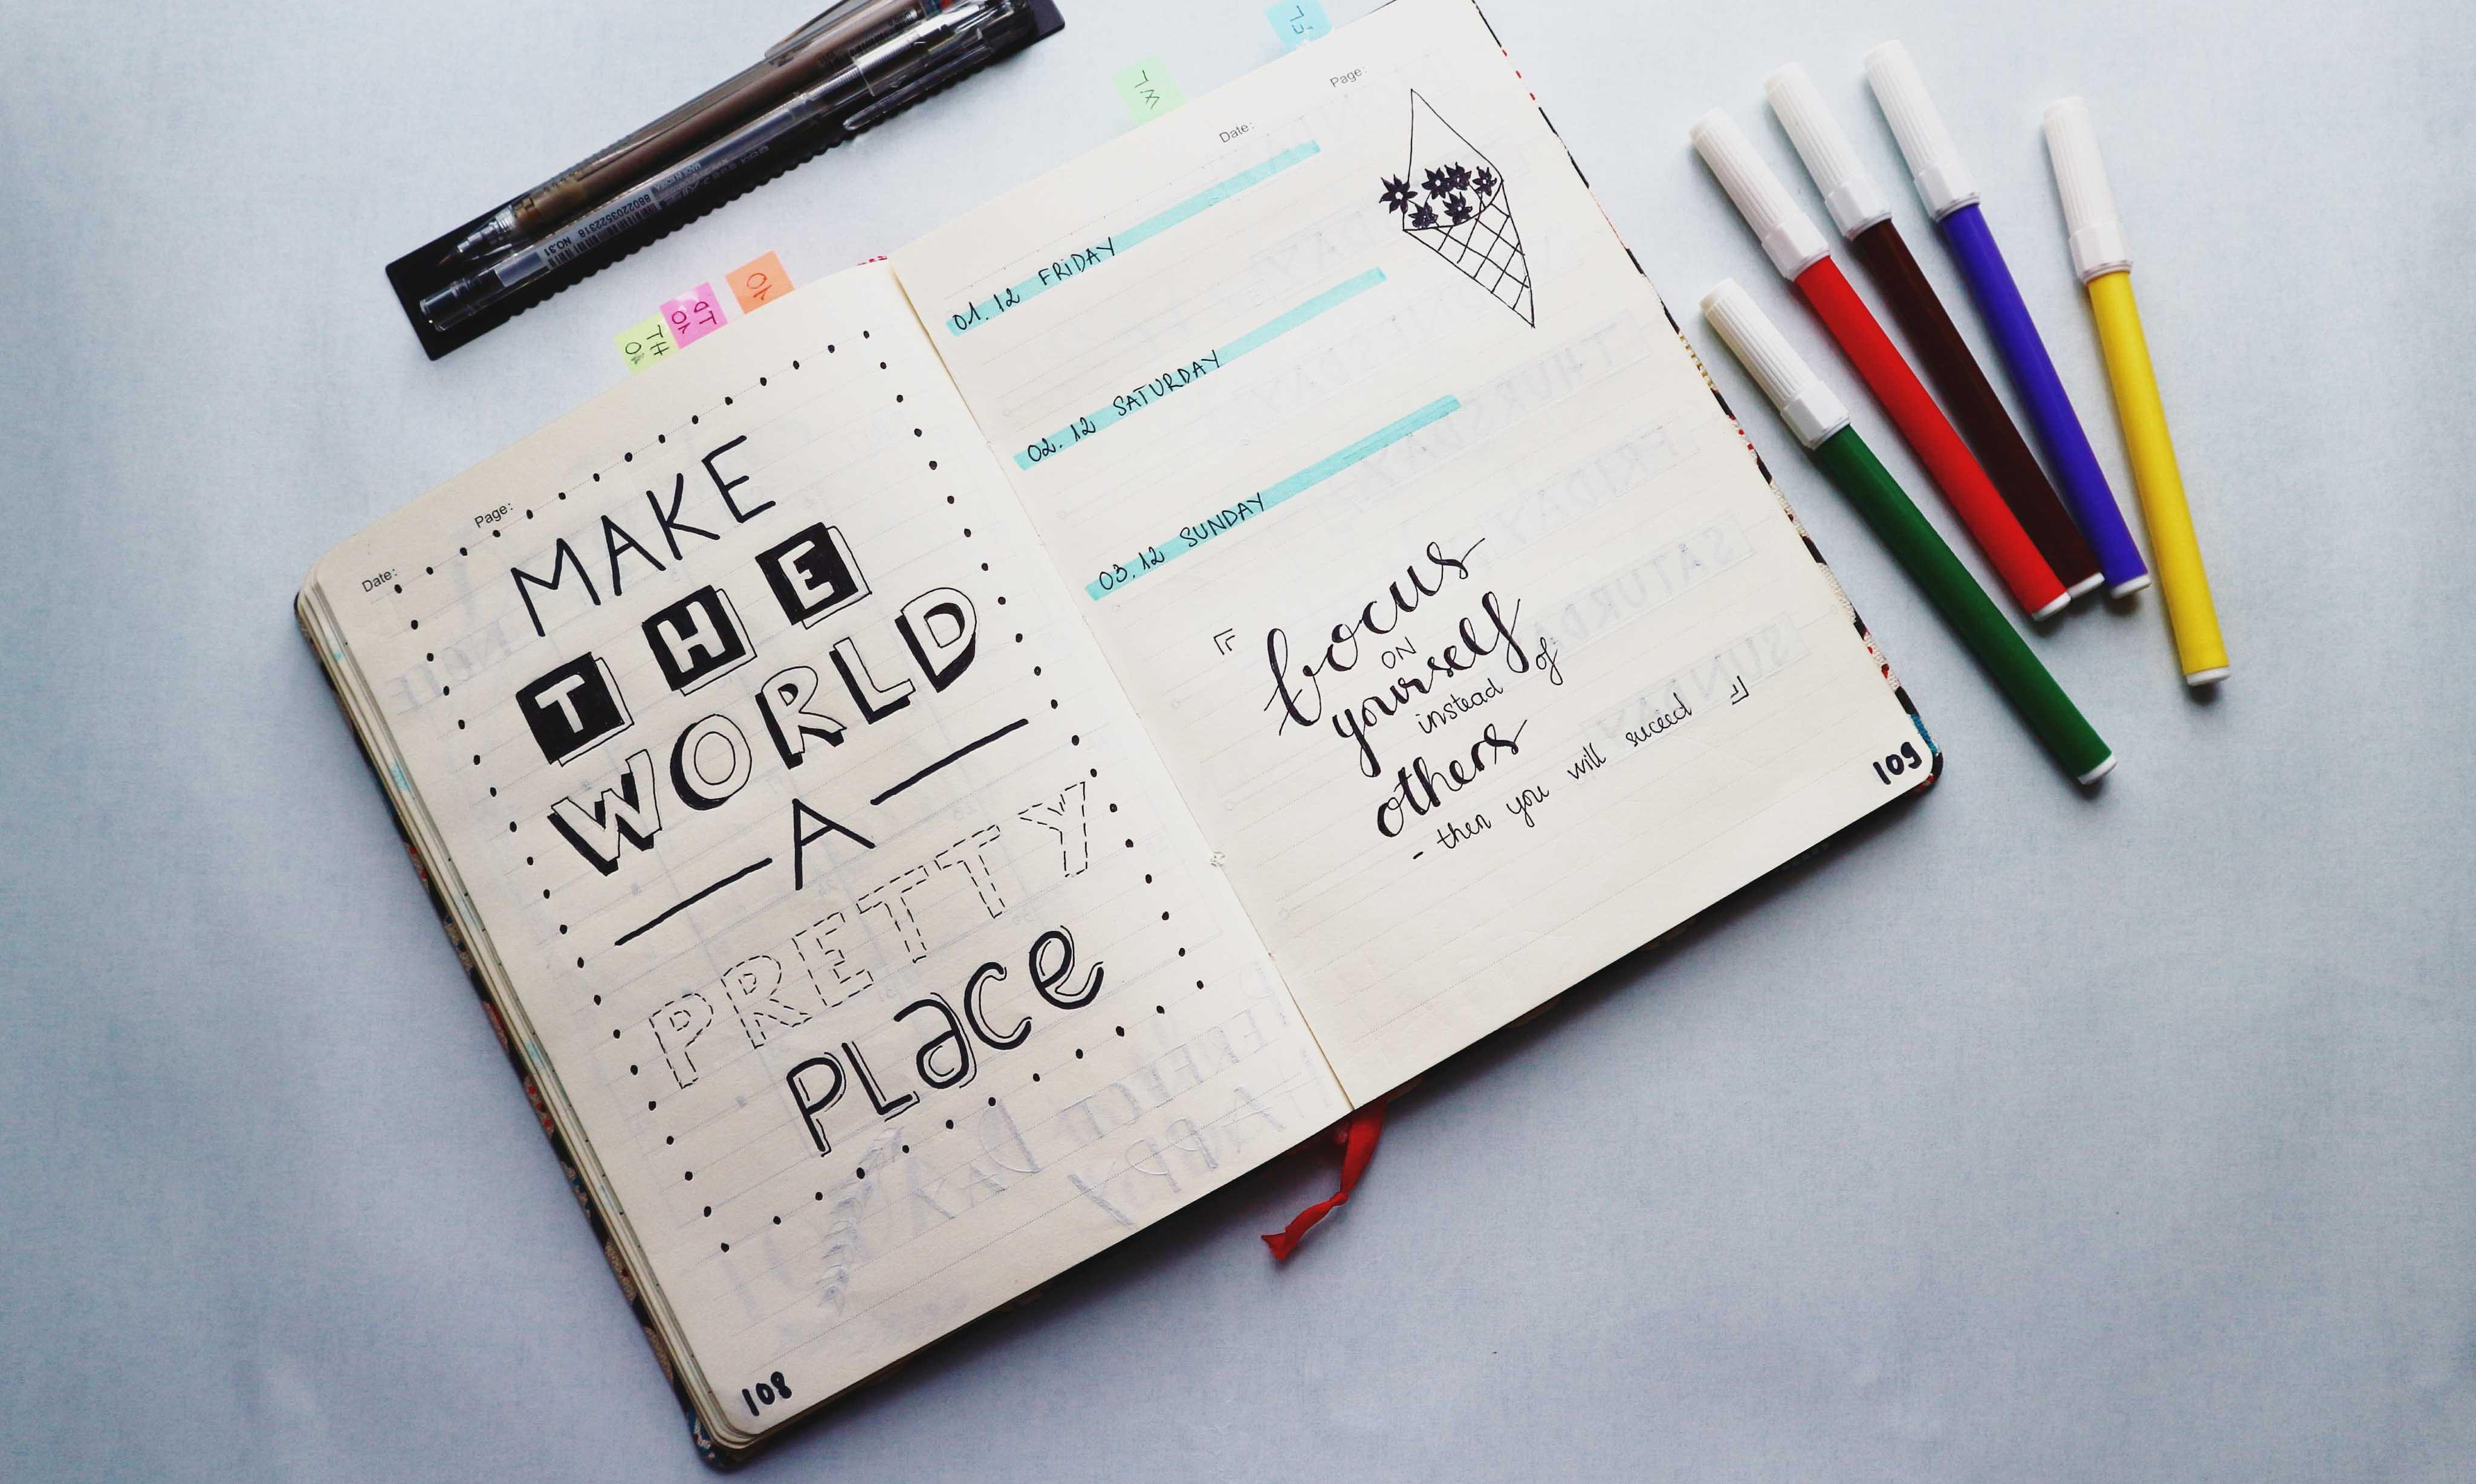 Date: Page:
MAKE
THE
WORLD
A
PRETTY
PLace
108
Date: Page:
01.12 FRIDAY
02.12 SATURDAY
03.12 SUNDAY
focus
ON
yourself
instead of
others
- then you will succeed
109
NO.31
8802203522318